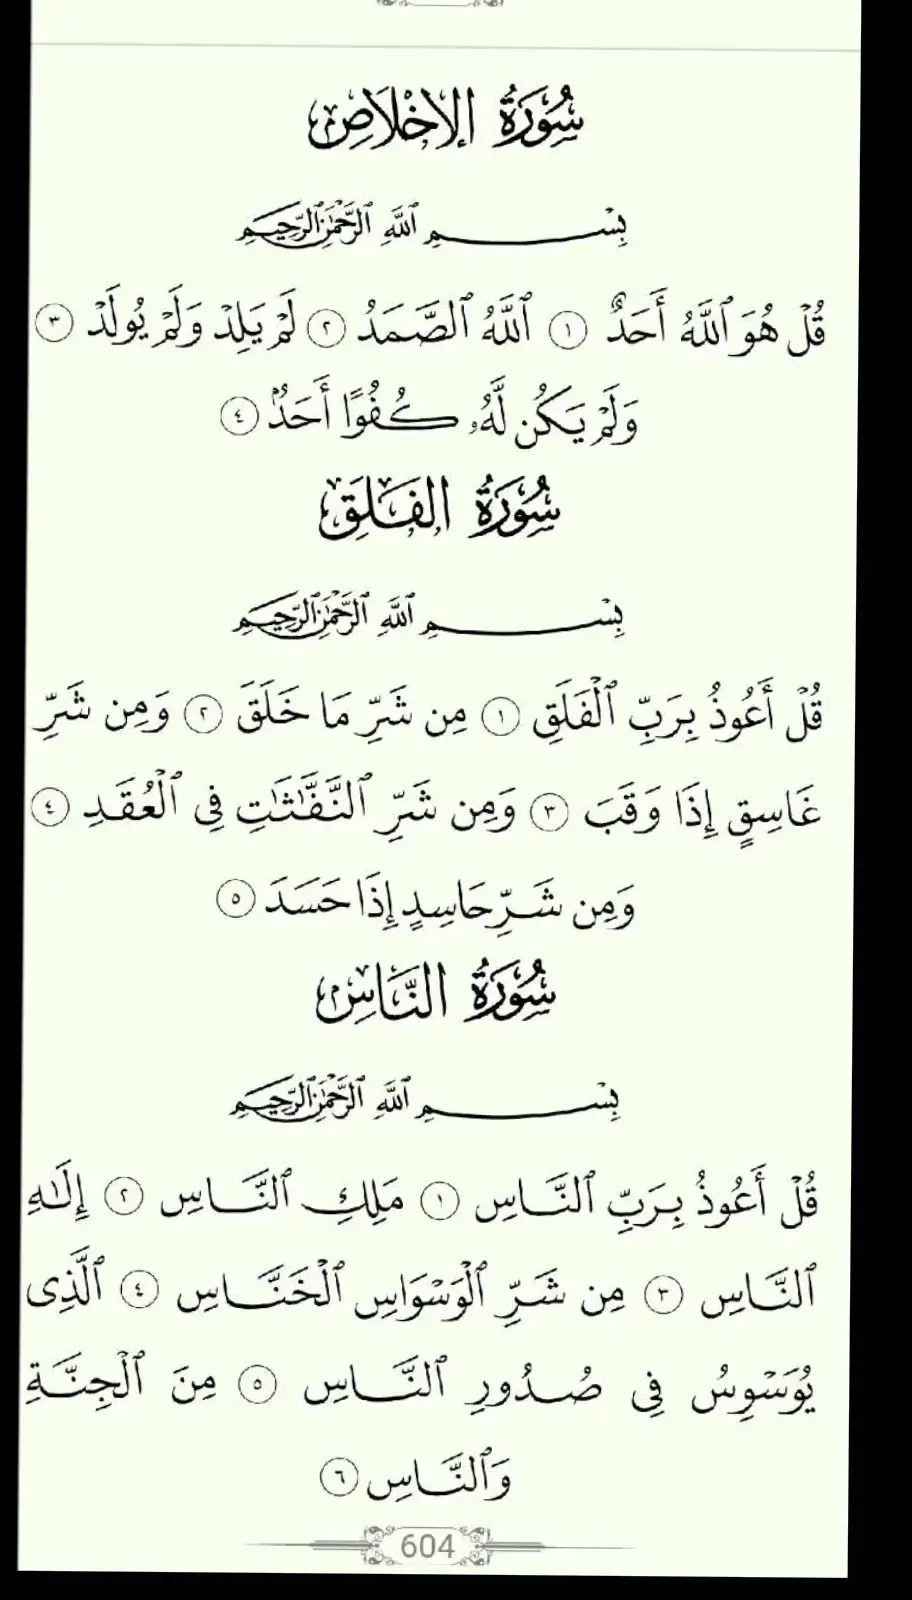 سُورَةُ الإِخْلَاصِ
بِسْمِ ٱللَّهِ ٱلرَّحْمَٰنِ ٱلرَّحِيمِ
قُلْ هُوَ ٱللَّهُ أَحَدٌ ١ ٱللَّهُ ٱلصَّمَدُ ٢ لَمْ يَلِدْ وَلَمْ يُولَدْ ٣
وَلَمْ يَكُن لَّهُۥ كُفُوًا أَحَدٌۢ ٤
سُورَةُ الفَلَقِ
بِسْمِ ٱللَّهِ ٱلرَّحْمَٰنِ ٱلرَّحِيمِ
قُلْ أَعُوذُ بِرَبِّ ٱلْفَلَقِ ١ مِن شَرِّ مَا خَلَقَ ٢ وَمِن شَرِّ
غَاسِقٍ إِذَا وَقَبَ ٣ وَمِن شَرِّ ٱلنَّفَّٰثَٰتِ فِى ٱلْعُقَدِ ٤
وَمِن شَرِّ حَاسِدٍ إِذَا حَسَدَ ٥
سُورَةُ النَّاسِ
بِسْمِ ٱللَّهِ ٱلرَّحْمَٰنِ ٱلرَّحِيمِ
قُلْ أَعُوذُ بِرَبِّ ٱلنَّاسِ ١ مَلِكِ ٱلنَّاسِ ٢ إِلَٰهِ
ٱلنَّاسِ ٣ مِن شَرِّ ٱلْوَسْوَاسِ ٱلْخَنَّاسِ ٤ ٱلَّذِى
يُوَسْوِسُ فِى صُدُورِ ٱلنَّاسِ ٥ مِنَ ٱلْجِنَّةِ
وَٱلنَّاسِ ٦
604